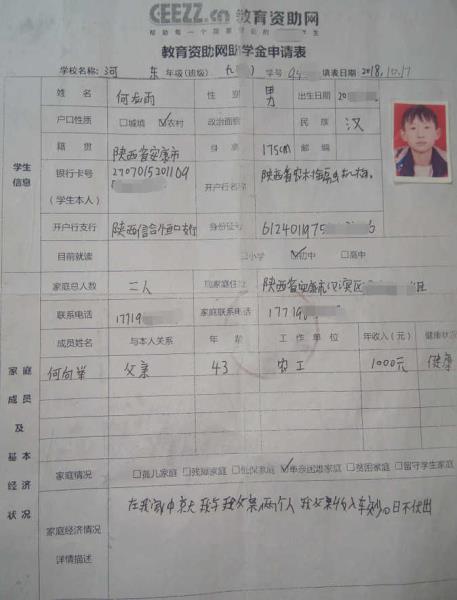 CEEZZ.cn 教育资助网
帮助每一个 生
教育资助网助学金申请表
学校名称: 河 东 年级(班级) 九 学号 填表日期 2018.10.17
姓 名 何右雨 性 别 男 出生日期 20
户口性质 □城镇 ☑农村 政治面貌 民 族 汉
籍 贯 陕西省安康市 身 高 175cm 邮 编
学生
信息
银行卡号 2707015201109
(学生本人)
开户行名称 陕西省农村
开户行支行 陕西信合 支行 身份证号 6124011975 6
目前就读 □小学 ☑初中 □高中
家庭总人数 二人 现家庭住址 陕西省安康市汉滨区
联系电话 17719 家庭联系电话 17719
成员姓名 与本人关系 年 龄 工 作 单 位 年收入(元) 健康状况
何向举 父亲 43 农工 1000元 健康
家 庭
成 员
及
基 本
经 济
状 况
家庭情况 □孤儿家庭 □残障家庭 □低保家庭 ☑单亲困难家庭 □贫困家庭 □留守学生家庭
家庭经济情况
详情描述
在我家中 我与我父亲两个人 我父亲